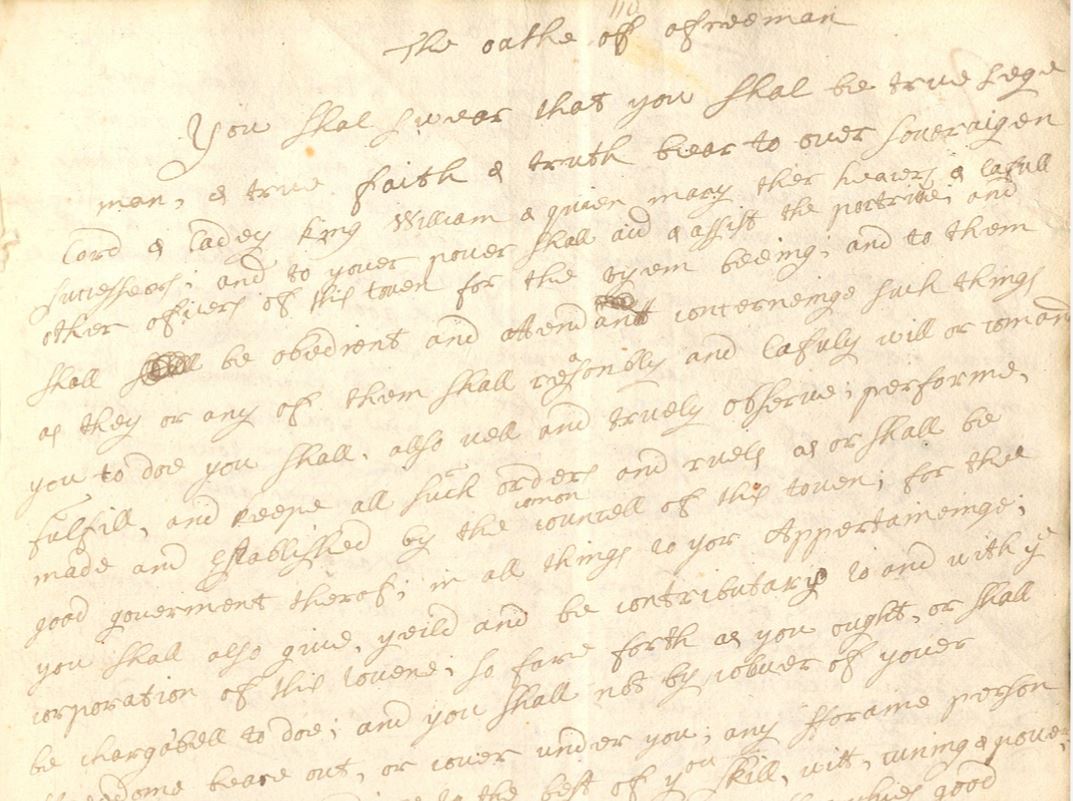 110
The oathe of afreeman
You shal swear that you shal be true Lege
man, & true faith & truth bear to over soveraigen
Lord & Ladey king William & quien mary ther heaiers & lafull
successeors; and to youer pouer shall aid & assist the portrive; and
other oficers of this touen for the tyem beeing; and to them
shall be obedient and attendant concerneinge such things
as they or any of them shall resonably and Lafuly will or coman
you to doe you shall, also well and truely observe; performe,
fulfill, and keepe all such orders and ruels as or shall be
made and established by the comon councell of this touen; for the
good goverment therof; in all things to yor Appertaineinge;
you shall also give, yeild and be contributary to and with ye
corporation of this touene; so fare forth as you ought, or shall
be chargabell to doe; and you shall not by colouer of youer
beare out, or cover under you; any fforaine person
to the best of you skill, witt, cuning & pouer
good